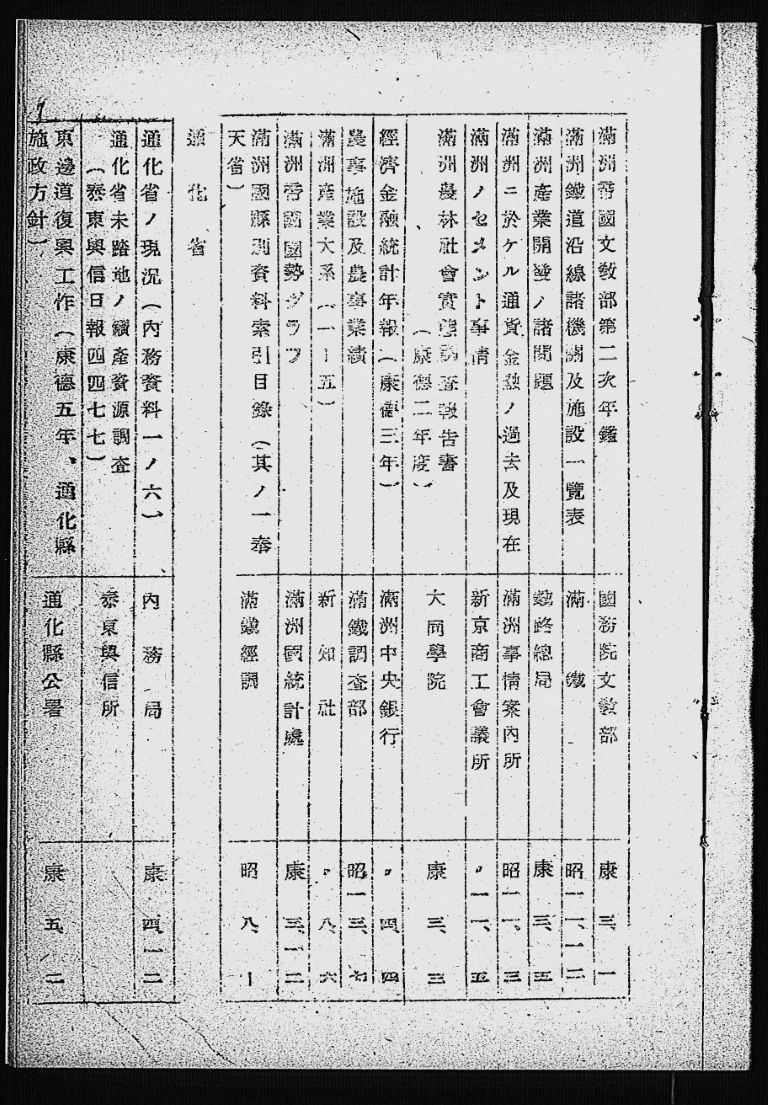 滿洲帝國文敎部第二次年鑑 國務院文敎部 康 三、一
滿洲鐵道沿線諸機關及施設一覽表 滿鐵 昭一一、一二
滿洲產業開發ノ諸問題 鐵路總局 康 三、五
滿洲ニ於ケル通貨金融ノ過去及現在 滿洲事情案內所 昭一一、三
滿洲ノセメント事情 新京商工會議所 〃一一、五
滿洲農林社會實態調查報告書
(康德二年度) 大同學院 康 三、三
經濟金融統計年報(康德三年) 滿洲中央銀行 〃 四、四
農事施設及農事業績 滿鐵調查部 昭一三、七
滿洲產業大系(一ー五) 新知社 〃 八、六
滿洲帝國國勢グラフ 滿洲國統計處 康 三、一二
滿洲國縣別資料索引目錄(其ノ一奉
天省) 滿鐵經調 昭 八、
通化省
通化省ノ現況(內務資料一ノ六) 內務局 康 四、一二
通化省未踏地ノ鑛產資源調查
(泰東興信日報四四七七) 泰東興信所
東邊道復興工作(康德五年、通化縣
施政方針) 通化縣公署 康 五、二